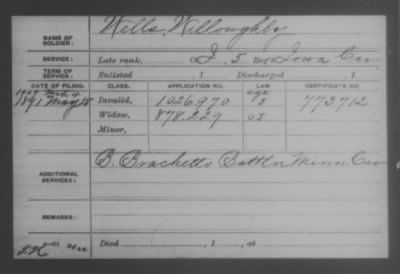 NAME OF SOLDIER: Wells, Willoughby
SERVICE: Late rank, Co. I, 5 Reg't Iowa Cav
TERM OF SERVICE: Enlisted , 1 Discharged , 1
DATE OF FILING. CLASS. APPLICATION NO. LAW. CERTIFICATE NO.
1891 May 15 Invalid, 1026970 773712
Widow, 878.229
Minor,
ADDITIONAL SERVICES: B. Bracketts Battln Minn Cav
REMARKS:
Died , 1 , at